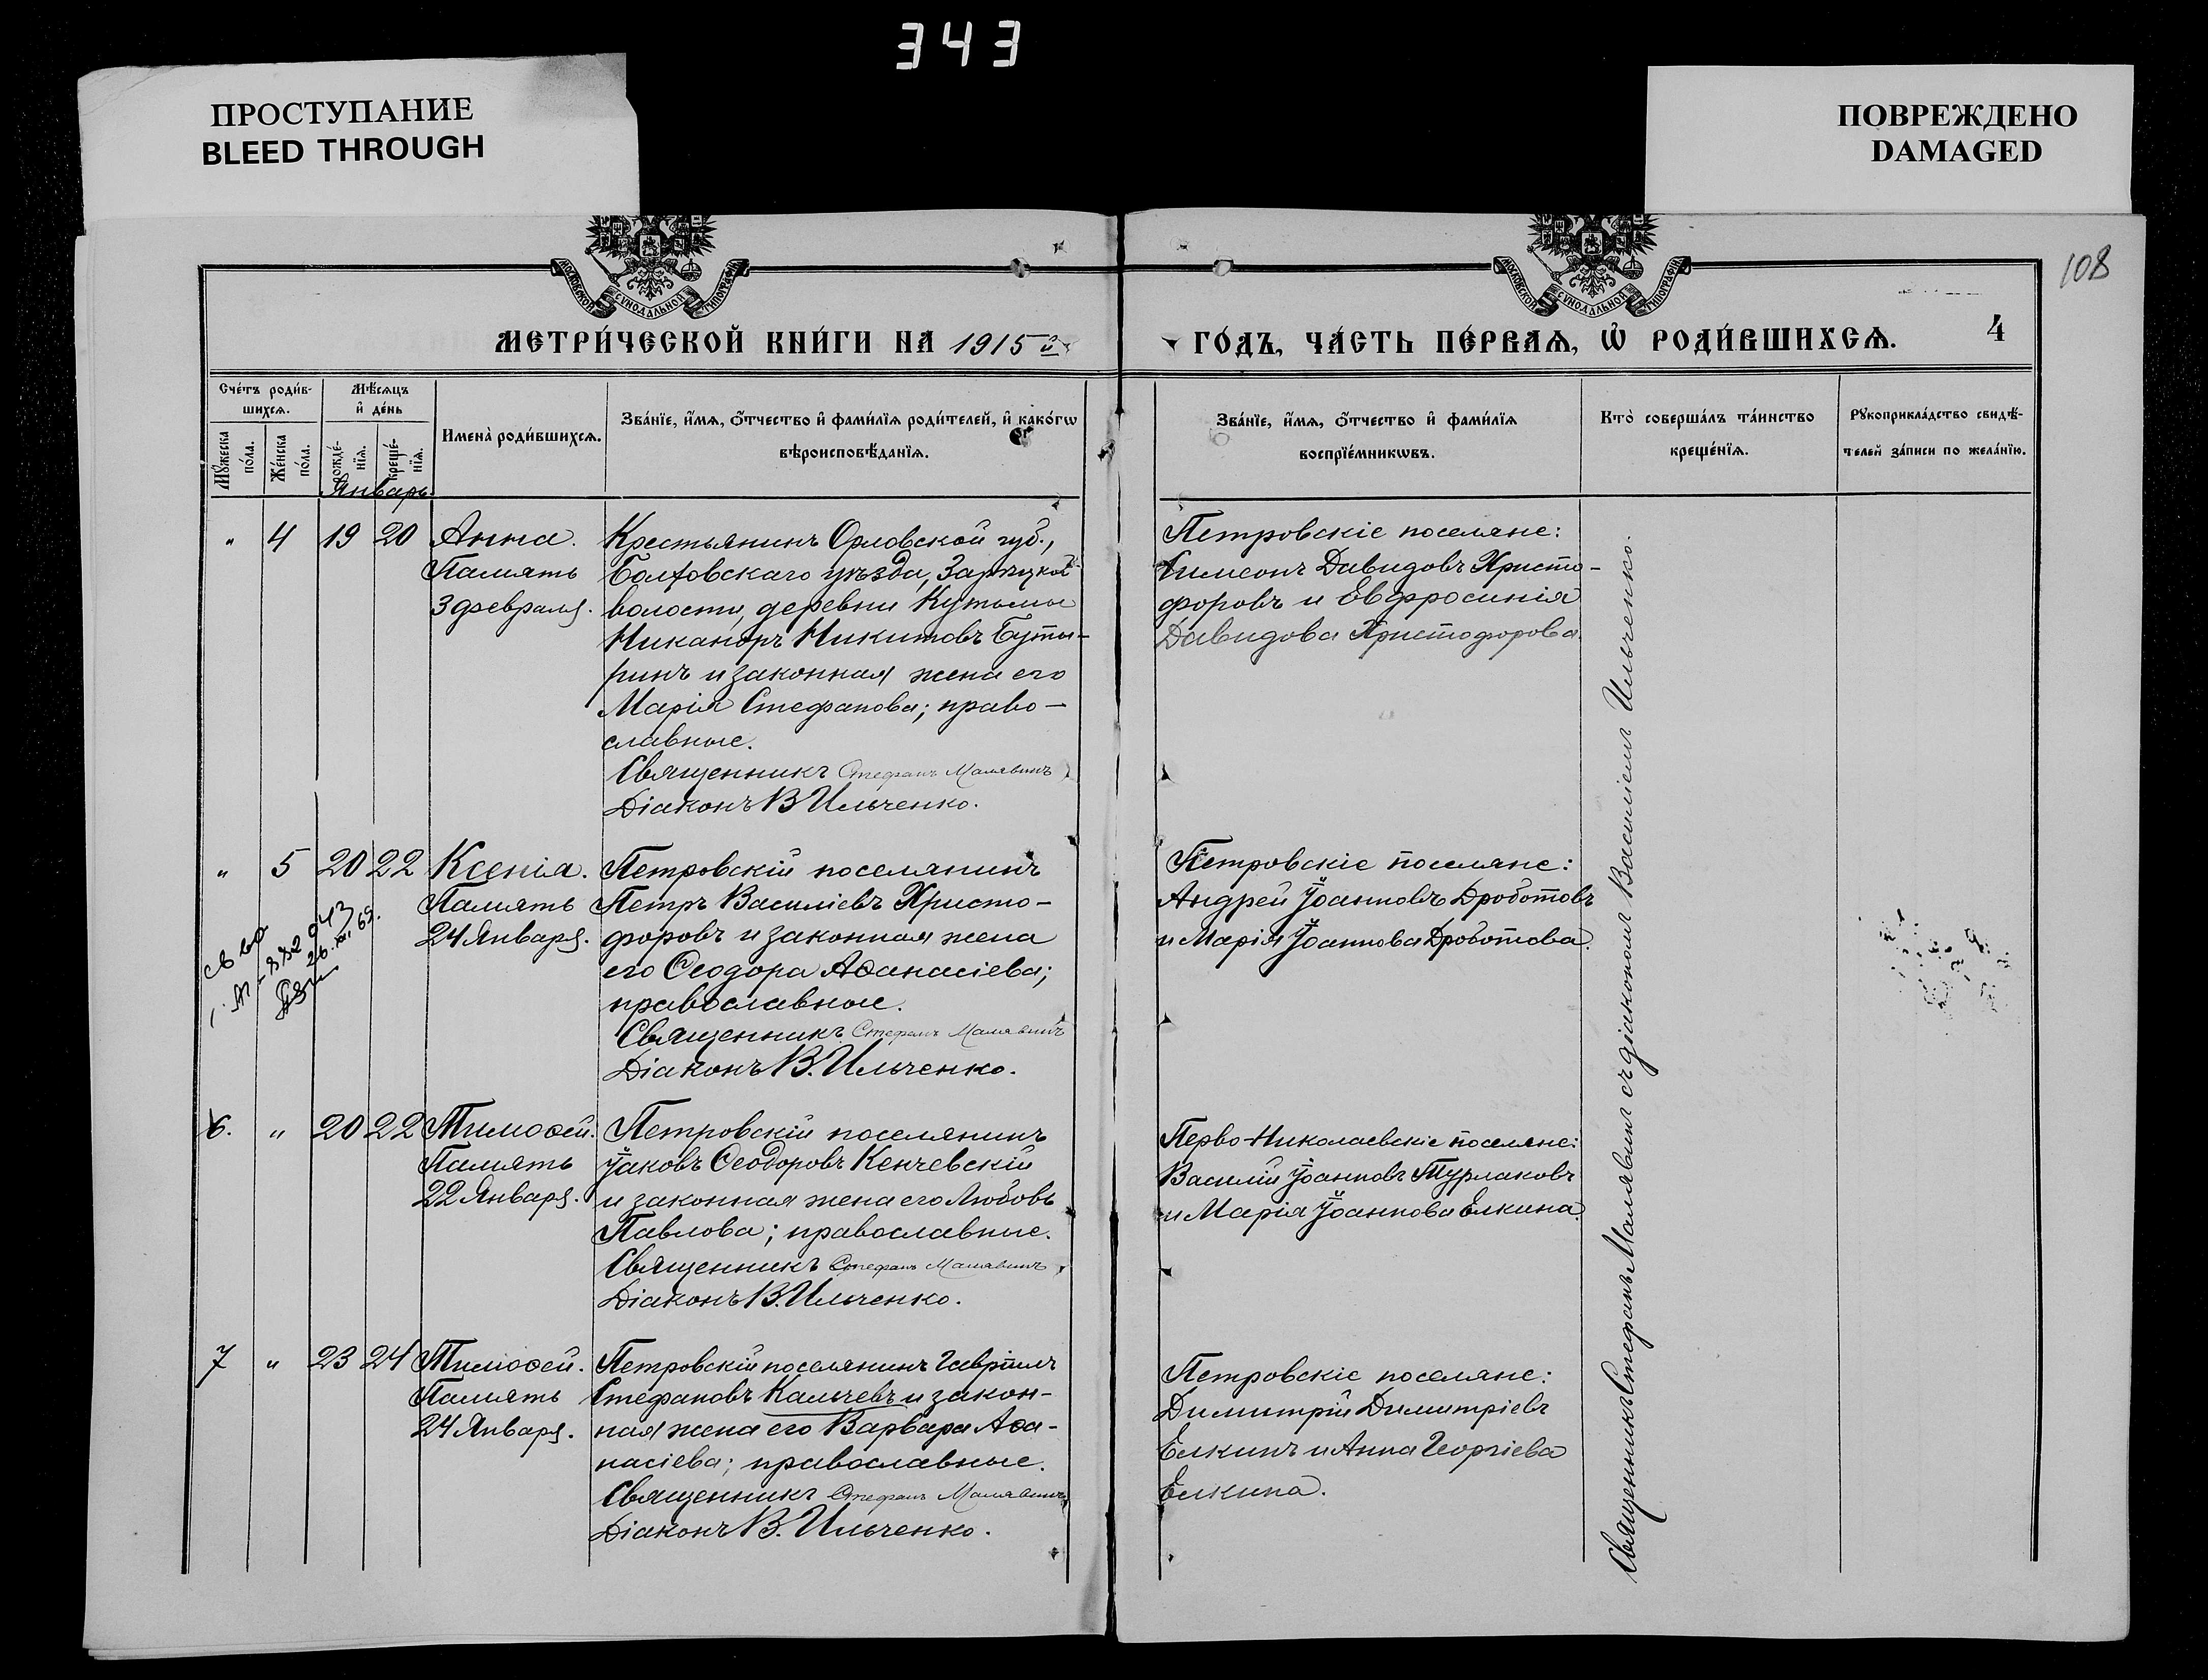 343
ПРОСТУПАНИЕ
BLEED THROUGH
ПОВРЕЖДЕНО
DAMAGED
МОСКОВСКОЙ СѴНОДАЛЬНОЙ ТИПОГРАФІИ
МОСКОВСКОЙ СѴНОДАЛЬНОЙ ТИПОГРАФІИ
108
МЕТРИ́ЧЕСКОЙ КНИ́ГИ НА 1915 й
ГО́ДЪ, ЧА́СТЬ ПЕ́РВАѦ, Ѽ РОДИ́ВШИХСѦ.
4
Сче́тъ роди́в-
шихсѧ.
Мѣ́сѧцъ
и҆ де́нь
Мꙋ́жеска
по́ла.
Же́нска
по́ла.
Рожде́-
нїѧ.
Креще́-
нїѧ.
Имена̀ роди́вшихсѧ.
Зва́нїе, и҆́мѧ, ѻ҆́тчество и҆ фами́лїѧ роди́телей, и҆ како́гѡ
вѣроисповѣ́данїѧ.
Зва́нїе, и҆́мѧ, ѻ҆́тчество и҆ фами́лїѧ
воспрїе́мникѡвъ.
Кто̀ соверша́лъ та́инство
креще́нїѧ.
Рꙋкоприкла́дство свидѣ́-
телей за́писи по жела́нїю.
Январь.
" 4 19 20 Анна.
Память
3 февраля.
Крестьянинъ Орловской губ.,
Болховскаго уѣзда,
волости, деревни
Никаноръ Никитовъ Буты-
ринъ и законная жена его
Марія Стефанова; право-
славные.
Священникъ Стефанъ Малявинъ
Діаконъ В Ильченко.
Петровскіе поселяне:
Симеонъ Давидовъ Христо-
форовъ и Евфросинія
Давидова Христофорова.
" 5 20 22 Ксенія.
Память
24 Января.
Петровскій поселянинъ
Петръ Василіевъ Христо-
форовъ и законная жена
его Ѳеодора Аѳанасіева;
православные.
Священникъ Стефанъ Малявинъ
Діаконъ В. Ильченко.
Петровскіе поселяне:
Андрей Іоанновъ Дроботовъ
и Марія Іоаннова Дроботова.
6. " 20 22 Тимоѳей.
Память
22 Января.
Петровскій поселянинъ
Іаковъ Ѳеодоровъ Кенчевскій
и законная жена его Любовь
Павлова; православные.
Священникъ Стефанъ Малявинъ
Діаконъ В. Ильченко.
Перво-Николаевскіе поселяне:
Василій Іоанновъ Турлаковъ
и Марія Іоаннова Елкина.
7 " 23 24 Тимоѳей.
Память
24 Января.
Петровскій поселянинъ Гавріилъ
Стефановъ Кальчевъ и закон-
ная жена его Варвара Аѳа-
насіева; православные.
Священникъ Стефанъ Малявинъ
Діаконъ В. Ильченко.
Петровскіе поселяне:
Димитрій Димитріевъ
Елкинъ и Анна Георгіева
Елкина.
Священникъ Стефанъ Малявинъ съ діакономъ Василіемъ Ильченко.